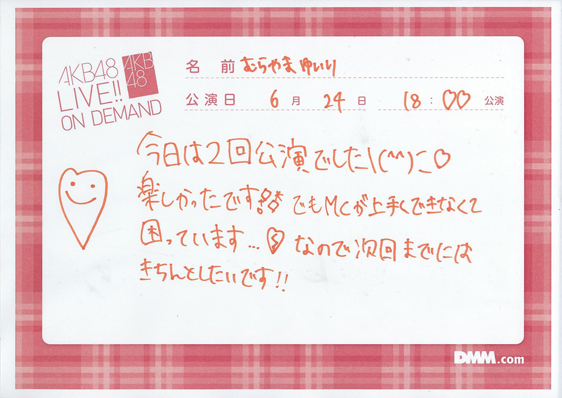 AKB48
LIVE!!
ON DEMAND
AKB
48
名 前 むらやまゆいり
公演日 6月 24日 18:♡♡公演
今日は2回公演でした\(^^)こ♡
楽しかったです でもMCが上手くできなくて
困っています… なので次回までには
きちんとしたいです!!
DMM.com